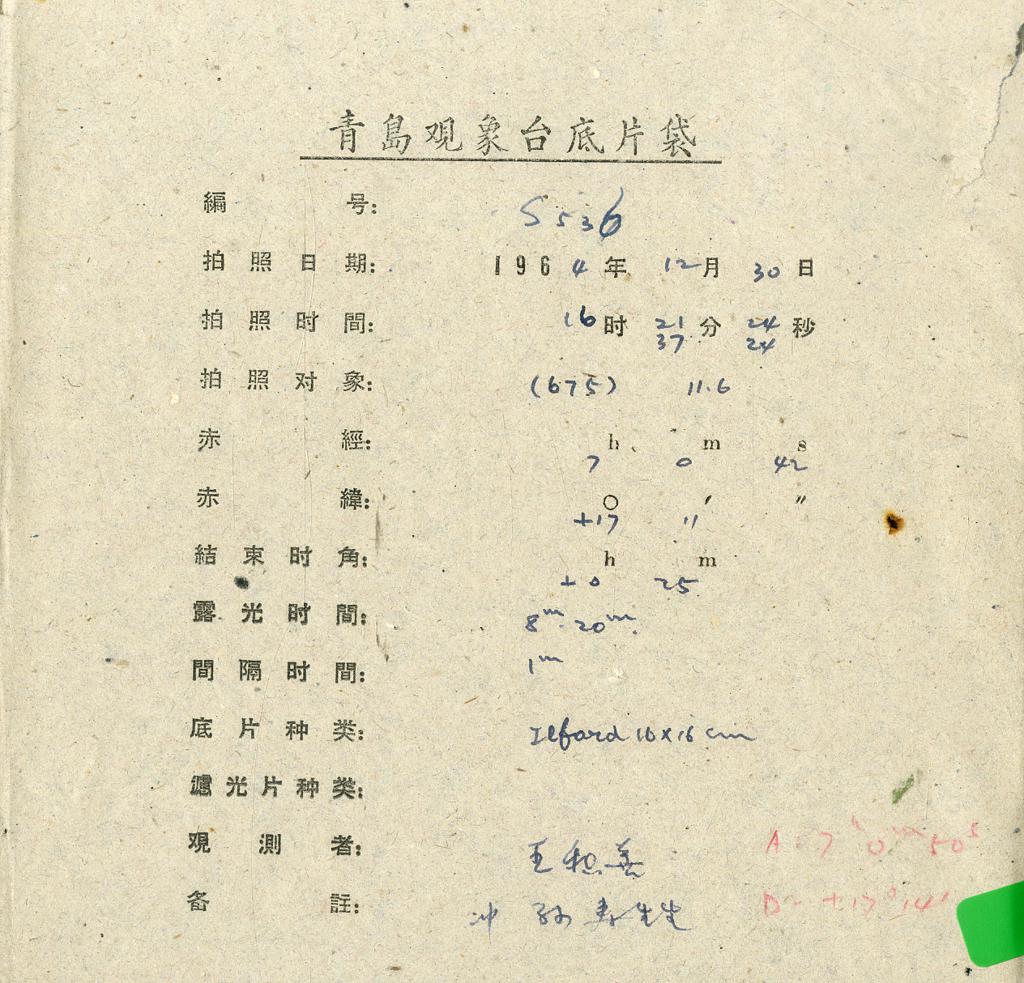 青島观象台底片袋
編号: S536
拍照日期: 1964年 12月 30日
拍照时間: 16时 21分 24秒
37 24
拍照对象: (675) 11.6
赤經: 7h 0m 42s
赤緯: +17° 11′ ″
結束时角: +0h 25m
露光时間: 8m. 20m.
間隔时間: 1m
底片种类: Ilford 16x16cm
濾光片种类:
观測者: 王积善
A: 7h 0m 50s
备註: 冲
D +17°14'